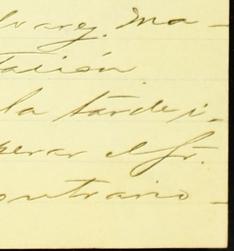 lvarez. Ma-
tación
la tarde i.
perar el Sr.
ontrario